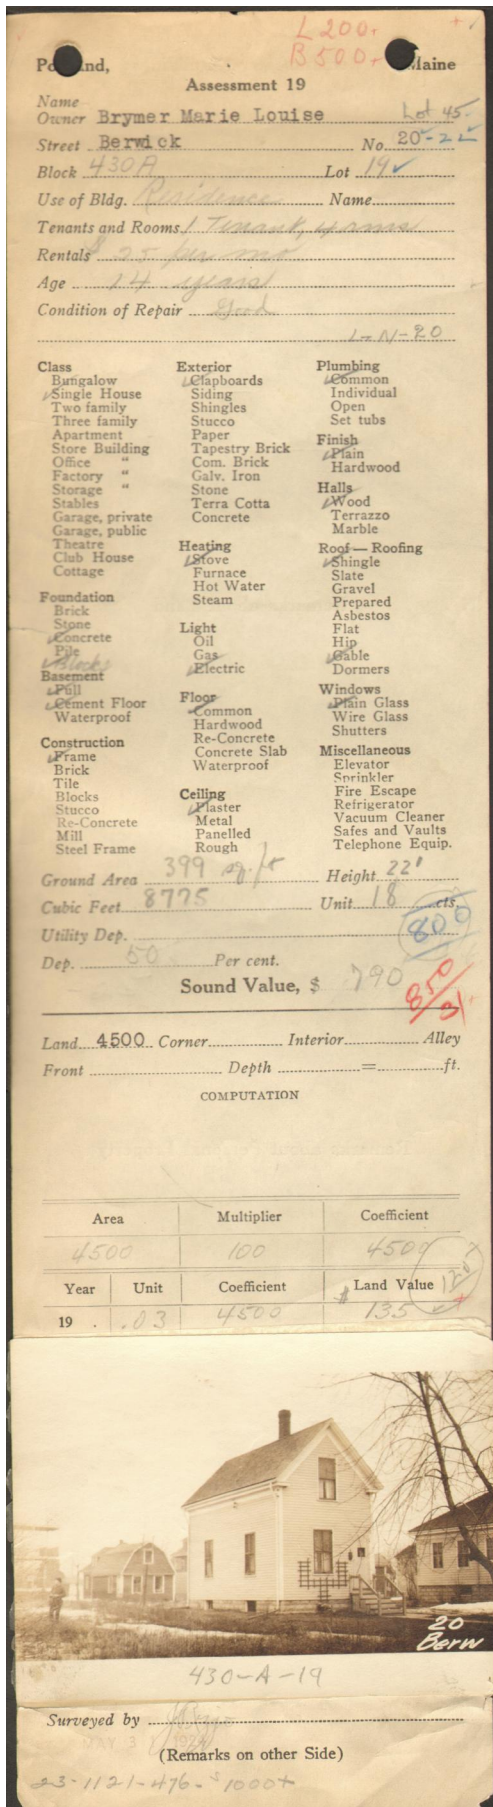 L 200.
B 500.
Portland, Maine
Assessment 19
Name
Owner Brymer Marie Louise Lot 45.
Street Berwick No. 20-22
Block 430A Lot 19
Use of Bldg. Residence Name
Tenants and Rooms 1 Tenant, 4 rms
Rentals $25 per mo
Age 14 years
Condition of Repair Good
1-N-20
Class
Bungalow
Single House
Two family
Three family
Apartment
Store Building
Office "
Factory "
Storage "
Stables
Garage, private
Garage, public
Theatre
Club House
Cottage
Foundation
Brick
Stone
Concrete
Pile
Blocks
Basement
Full
Cement Floor
Waterproof
Construction
Frame
Brick
Tile
Blocks
Stucco
Re-Concrete
Mill
Steel Frame
Exterior
Clapboards
Siding
Shingles
Stucco
Paper
Tapestry Brick
Com. Brick
Galv. Iron
Stone
Terra Cotta
Concrete
Heating
Stove
Furnace
Hot Water
Steam
Light
Oil
Gas
Electric
Floor
Common
Hardwood
Re-Concrete
Concrete Slab
Waterproof
Ceiling
Plaster
Metal
Panelled
Rough
Plumbing
Common
Individual
Open
Set tubs
Finish
Plain
Hardwood
Halls
Wood
Terrazzo
Marble
Roof — Roofing
Shingle
Slate
Gravel
Prepared
Asbestos
Flat
Hip
Gable
Dormers
Windows
Plain Glass
Wire Glass
Shutters
Miscellaneous
Elevator
Sprinkler
Fire Escape
Refrigerator
Vacuum Cleaner
Safes and Vaults
Telephone Equip.
Ground Area 399 sq. ft Height 22'
Cubic Feet 8775 Unit 18 cts.
800
Utility Dep.
Dep. 50 Per cent.
Sound Value, $ 790
850/31
Land 4500 Corner Interior Alley
Front Depth = ft.
COMPUTATION
Area Multiplier Coefficient
4500 100 4500
Year Unit Coefficient Land Value
19 .03 4500 $ 135
20
Berw
430-A-19
Surveyed by
MAY 3 1924
(Remarks on other Side)
23-1121-476-$1000+